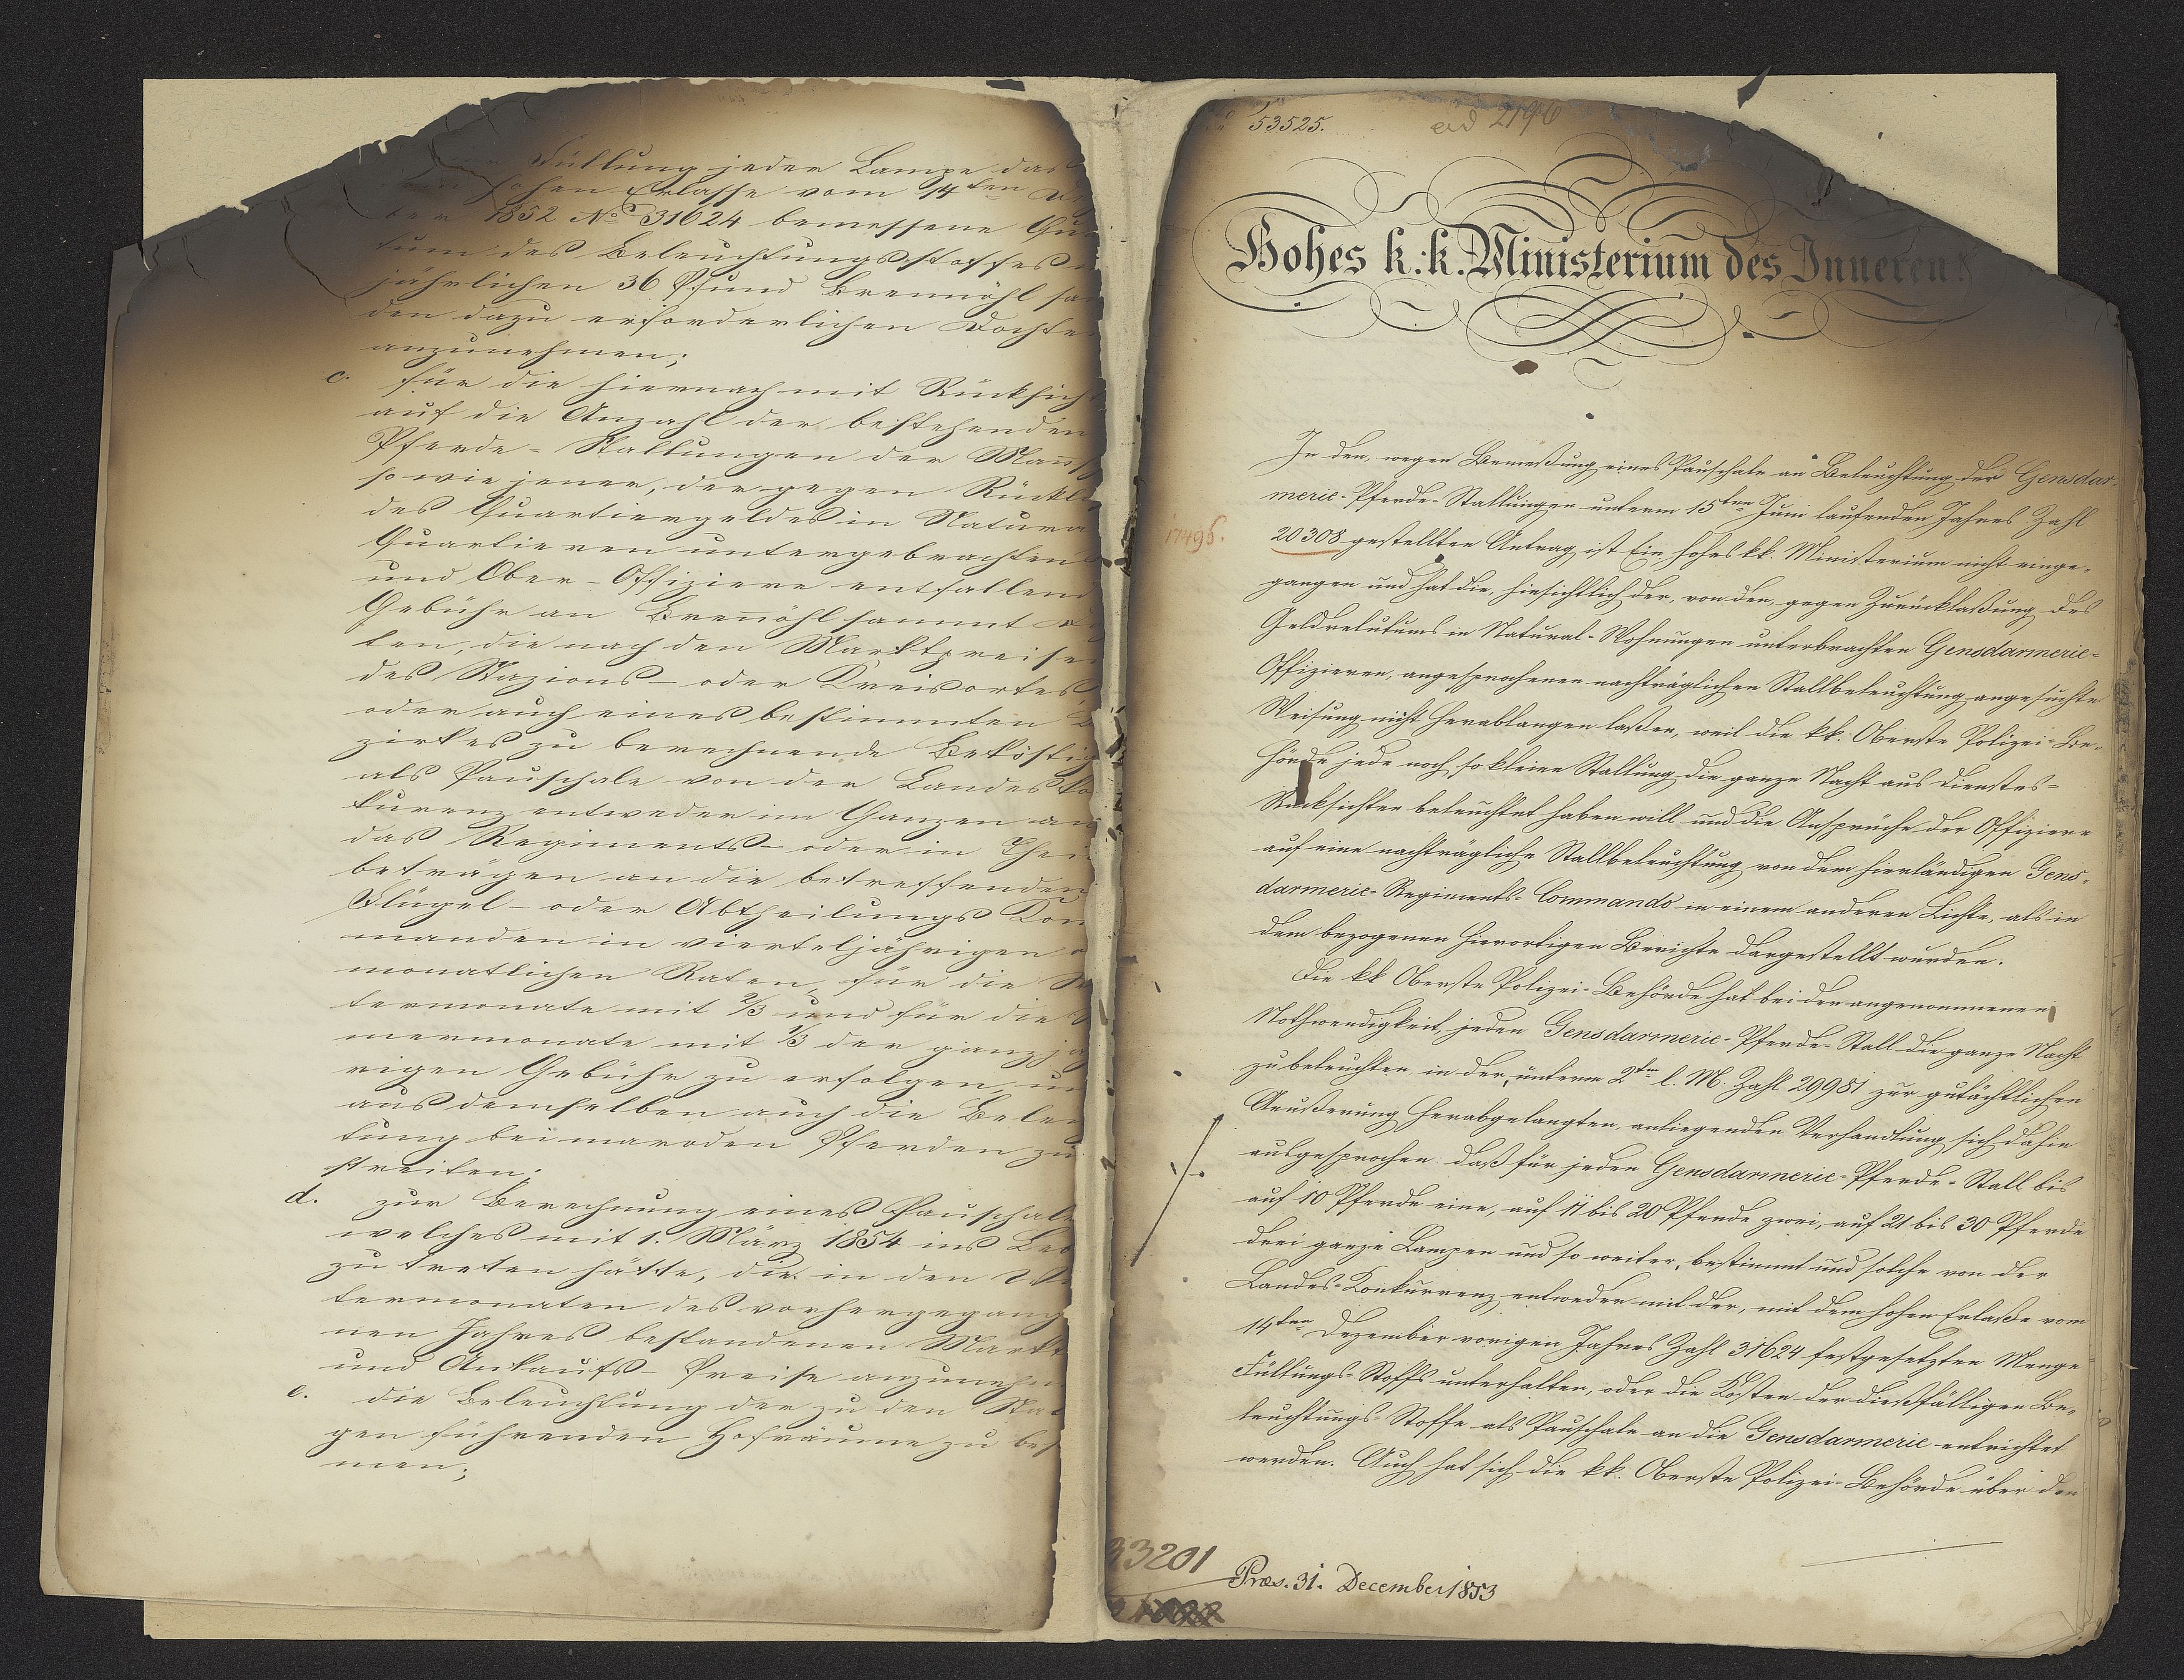 Füllung jeder Lampe das
hohen Erlasse vom 14ten De
ber 1852 No 31624 bemessene Qu
tum des Beleuchtungsstoffes
jährlichen 36 Pfund Brennöhl sa
den dazu erforderlichen Dochte
anzunehmen;
c. für die hiernach mit Rücksich
auf die Anzahl der bestehenden
Pferde-Stallungen der Mann
so wie jener, der gegen Rückl
des Quartiergeldes in Natura
Quartieren untergebrachten
und Ober-Offiziere entfallen
Gebühr an Brennöhl sammt
ten, die nach den Marktpreise
des Stazions- oder Kreisortes
oder auch eines bestimmten
zirkes zu berechnende Beköstig
als Pauschale von der Landesko
kurenz entweder im Ganzen an
das Regiments- oder in Thei
beträgen an die betreffenden
Flügel- oder Abtheilungs Kom
manden in vierteljährigen
monatlichen Raten, für die
termonate mit 2/3 und für die
mermonate mit 1/3 der ganzjä
rigen Gebühr zu erfolgen, un
aus demselben auch die Beleu
tung bei maroden Pferden zu
streiten;
d. zur Berechnung eines Pauschale
welches mit 1. März 1854 ins Leb
zu treten hätte, die in den Wi
termonaten des vorhergegang
nen Jahres bestandenen Markt
und Ankaufs-Preise anzuneh
e. die Beleuchtung der zu den Stal
gen führenden Hofräume zu bes
men;
53525.
ad 2196
Hohes k. k. Ministerium des Inneren!
In den, wegen Bemeßung eines Pauschale an Beleuchtung der Gensdar-
merie-Pferde-Stallungen unterm 15ten Juni laufenden Jahres Zahl
17496.
20308 gestellten Antrag ist Ein hohes kk. Ministerium nicht einge-
gangen und hat die, hinsichtlich der, von den, gegen Zurücklaßung des
Geldrelutums in Natural-Wohnungen unterbrachten Gensdarmerie-
Offizieren, angesprochenen nachträglichen Stallbeleuchtung angesuchte
Weisung nicht herablangen laßen, weil die kk. Oberste Polizei-Be-
hörde jede noch so kleine Stallung die ganze Nacht aus Dienstes-
Rücksichten beleuchtet haben will und die Ansprüche der Offiziere
auf eine nachträgliche Stallbeleuchtung von dem hierländigen Gens-
darmerie-Regiments-Commando in einem anderen Lichte, als in
dem bezogenen hierortigen Berichte dargestellt wurden.
Die kk Oberste Polizei-Behörde hat bei der angenommenen
Nothwendigkeit, jeden Gensdarmerie-Pferde-Stall die ganze Nacht
zu beleuchten in der, unterm 2ten l. M. Zahl 29981 zur gutächtlichen
Aeußerung herabgelangten anliegenden Verhandlung sich dahin
ausgesprochen: daß für jeden Gensdarmerie-Pferde-Stall bis
auf 10 Pferde eine, auf 11 bis 20 Pferde zwei, auf 21 bis 30 Pferde
drei ganze Lampen und so weiter, bestimmt und solche von der
Landes-Konkurrenz entweder mit der, mit dem hohen Erlaße vom
14ten Dezember vorigen Jahres Zahl 31624 festgesetzten Menge
Füllungs-Stoffs unterhalten, oder die Kosten der dießfälligen Be-
leuchtungs-Stoffe als Pauschale an die Gensdarmerie entrichtet
werden. Auch hat sich die kk. Oberste Polizei-Behörde über den
33201
Præs. 31. December 1853